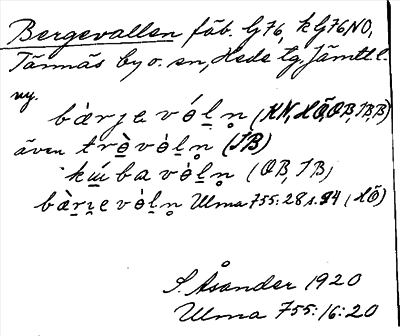 Bergevallen fäb. G76, k G76NO,
Tännäs by o. sn, Hede tg. Jämtl l.
ny.
bὰrjevó̱ḻn̥ (KN, HÖ, OB, IB, B)
även trò̱vò̱ḻn̥ (IB)
kú̱bavò̱ḻn̥ (OB, IB)
bὰṟi̱evò̱ḻn̥ Ulma 755:28 s. 94 (HÖ)
S. Åsander 1920
Ulma 755:16:20